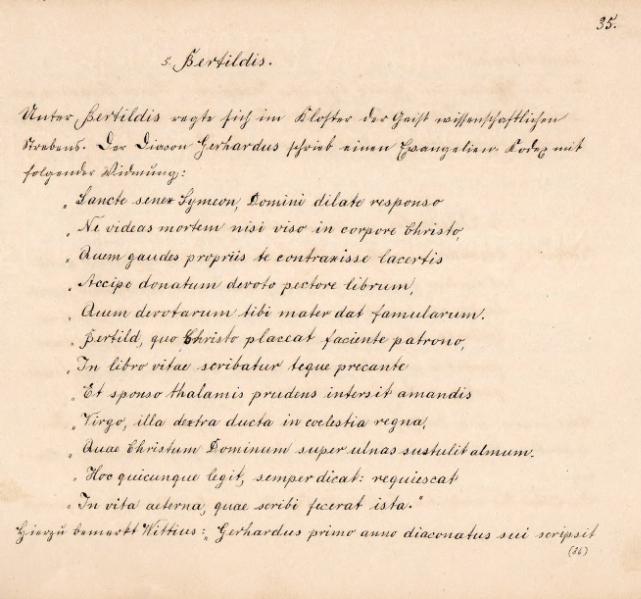 35.
5. Bertildis.
Unter Bertildis regte sich im Kloster der Geist wissenschaftlichen
Strebens. Der Diacon Gerhardus schrieb einen Evangelien-Kodex mit
folgender Widmung:
„Sancte senex Symeon, Domini dilate responso
„Ne videas mortem nisi viso in corpore Christo,
„Quem gaudes propriis te contraxisse lacertis
„Accipe donatum devoto pectore librum,
„Quem devotarum tibi mater dat famularum.
„Bertild, quo Christo placeat faciente patrono,
„In libro vitae scribatur teque precante
„Et sponso thalamis prudens intersit amandis
„Virgo, illa dextra ducta in coelestia regna,
„Quae Christum Dominum super ulnas sustulit almum.
„Hoc quicunque legit, semper dicat: requiescat
„In vita aeterna, quae scribi fecerat ista.“
Hierzu bemerkt Wittius: „Gerhardus primo anno diaconatus sui scripsit
(36)